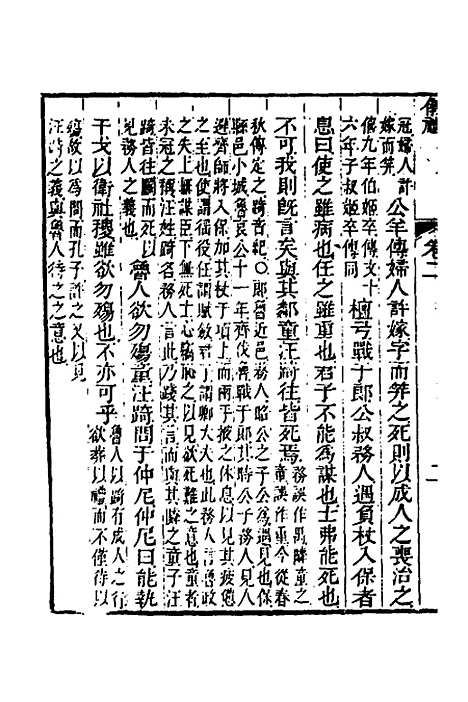 卷二
二
冠婦人許
嫁而笄
公羊傳婦人許嫁字而笄之死則以成人之喪治之
僖九年伯姬卒傳文十
六年子叔姬卒傳同
檀弓戰于郎公叔務人遇負杖入保者
息曰使之雖病也任之雖重也君子不能為謀也士弗能死也
不可我則既言矣與其鄰童汪踦往皆死焉
務誤作禺疇童之
童誤作重今從春
秋傳定之踦音紀○郎魯近邑務人昭公之子公為遇見也保
縣邑小城魯哀公十一年齊伐魯戰于郎其時公子務人見人
避齊師將入保加其杖于項上而兩手掖之休息以見其疲倦
之至也使謂徭役任謂賦斂君子謂卿大夫也此務人言魯政
之失上無謀臣下無死士心竊恥之以見欲死難之意也童者
未冠之稱汪踦名務人言此乃踐其言而與其鄰之童子汪
踦皆往鬭而死以
見務人之義也
魯人欲勿殤童汪踦問于仲尼仲尼曰能執
干戈以衛社稷雖欲勿殤也不亦可乎
魯人以踦有成人之行
欲葬以禮而不僅待以
殤故以為問而孔子許之又以見
汪踦之義與魯人待之之意也